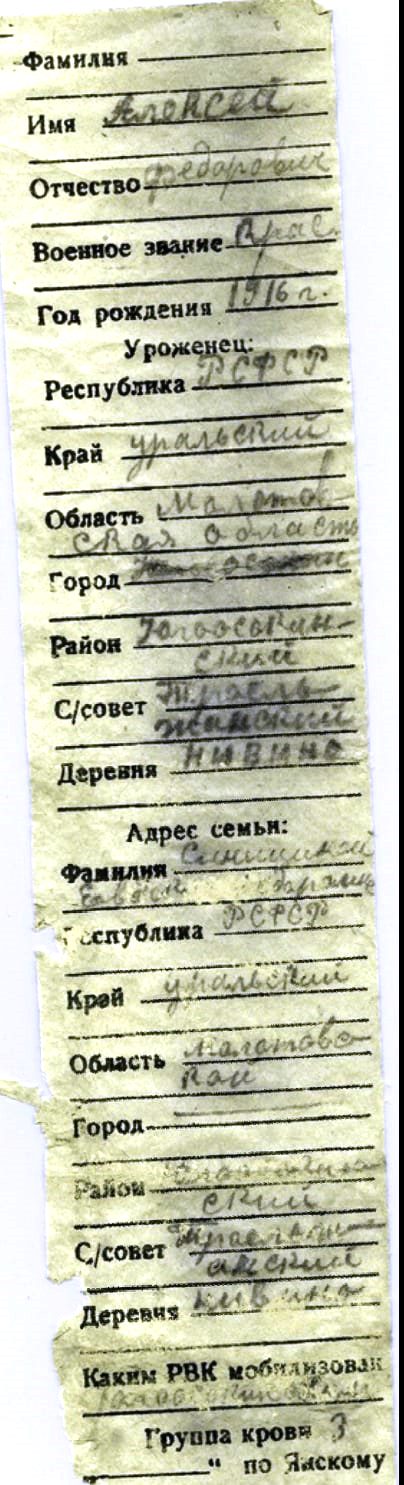 Фамилия
Имя Алексей
Отчество Федорович
Военное звание Крас.
Год рождения 1916 г.
Уроженец:
Республика РСФСР
Край уральский
Область Молотов-
ская область
Город
Район Югоосокин-
ский
С/совет Троель-
жанский
Деревня НИВИНО
Адрес семьи:
Фамилия Синицикой
Республика РСФСР
Край уральский
Область Молотовс-
кой
Город
Район
ский
С/совет
анский
Деревня нивино
Каким РВК мобилизован
Группа крови 3
" по Янскому